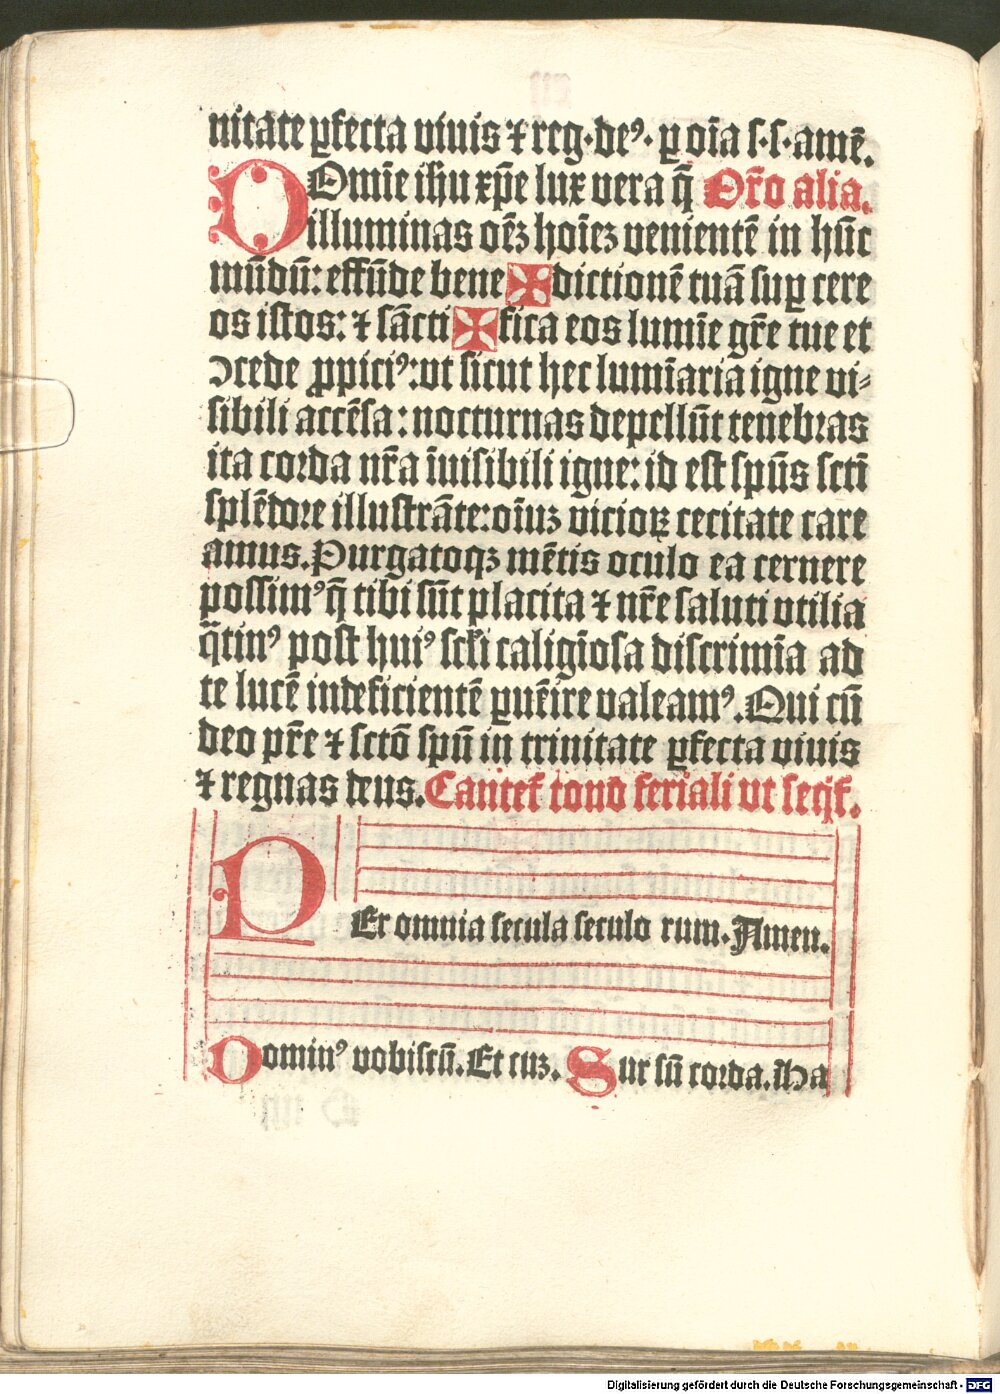 nitate ꝑfecta viuis ⁊ reg·de⁹· ꝑ oīa ſ·ſ·amē.
DOmīe ih̄u xp̄e lux vera q̄ Or̄o alia.
illuminas oēꝫ hoīeꝫ venientē in hūc
mūdū: effūde bene ✠ dictionē tuā suꝑ cere
os iſtos: ⁊ sācti ✠ fica eos lumīe gr̄e tue et
ꝯcede ꝓpici⁹: vt sicut hec lumīaria igne vi⸗
sibili accēſa: nocturnas depellūt tenebras
ita corda nr̄a īuisibili igne: id eſt ſpūs ſctī
ſplēdoꝛe illuſtrāte: oīuꝫ vicioꝝ cecitate care
amus. Purgatoqꝫ mētis oculo ea cernere
poſſim⁹ q̄ tibi sūt placita ⁊ nr̄e saluti vtilia
q̄tin⁹ poſt hui⁹ ſcƚi caligīoſa diſcrimīa ad
te lucē indeficientē ꝑuēire valeam⁹. Qui cū
deo pr̄e ⁊ ſctō ſpū in trinitate ꝑfecta viuis
⁊ regnas deus. Cantet᷑ tono feriali vt seqt᷑.
PEr omnia secula seculo rum. Amen.
Domin⁹ vobiſcū. Et cuꝫ. Sur sū coꝛda. Ha
Digitalisierung gefördert durch die Deutsche Forschungsgemeinschaft - DFG